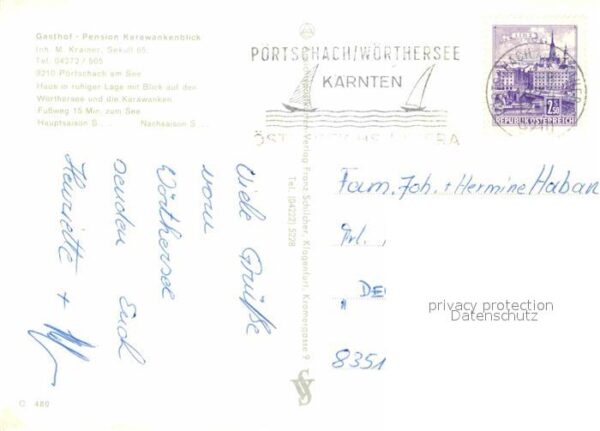 Gasthof - Pension Karawankenblick
Inh. M. Krainer, Sekull 65
Tel. 04272 / 505
9210 Pörtschach am See
Haus in ruhiger Lage mit Blick auf den
Wörthersee und die Karawanken
Fußweg 15 Min. zum See
Hauptsaison S . . . Nachsaison S . . .
PÖRTSCHACH/WÖRTHERSEE
KÄRNTEN
LINZ
2.50
REPUBLIK ÖSTERREICH
Viele Grüße
vom
Wörthersee
senden Euch
Henriette +
Verlag Franz Schilcher, Klagenfurt, Kramergasse 9
Tel. (04222) 5228
Fam. Joh. + Hermine Haban
Frl.
" DE
8351
privacy protection
Datenschutz
C 480